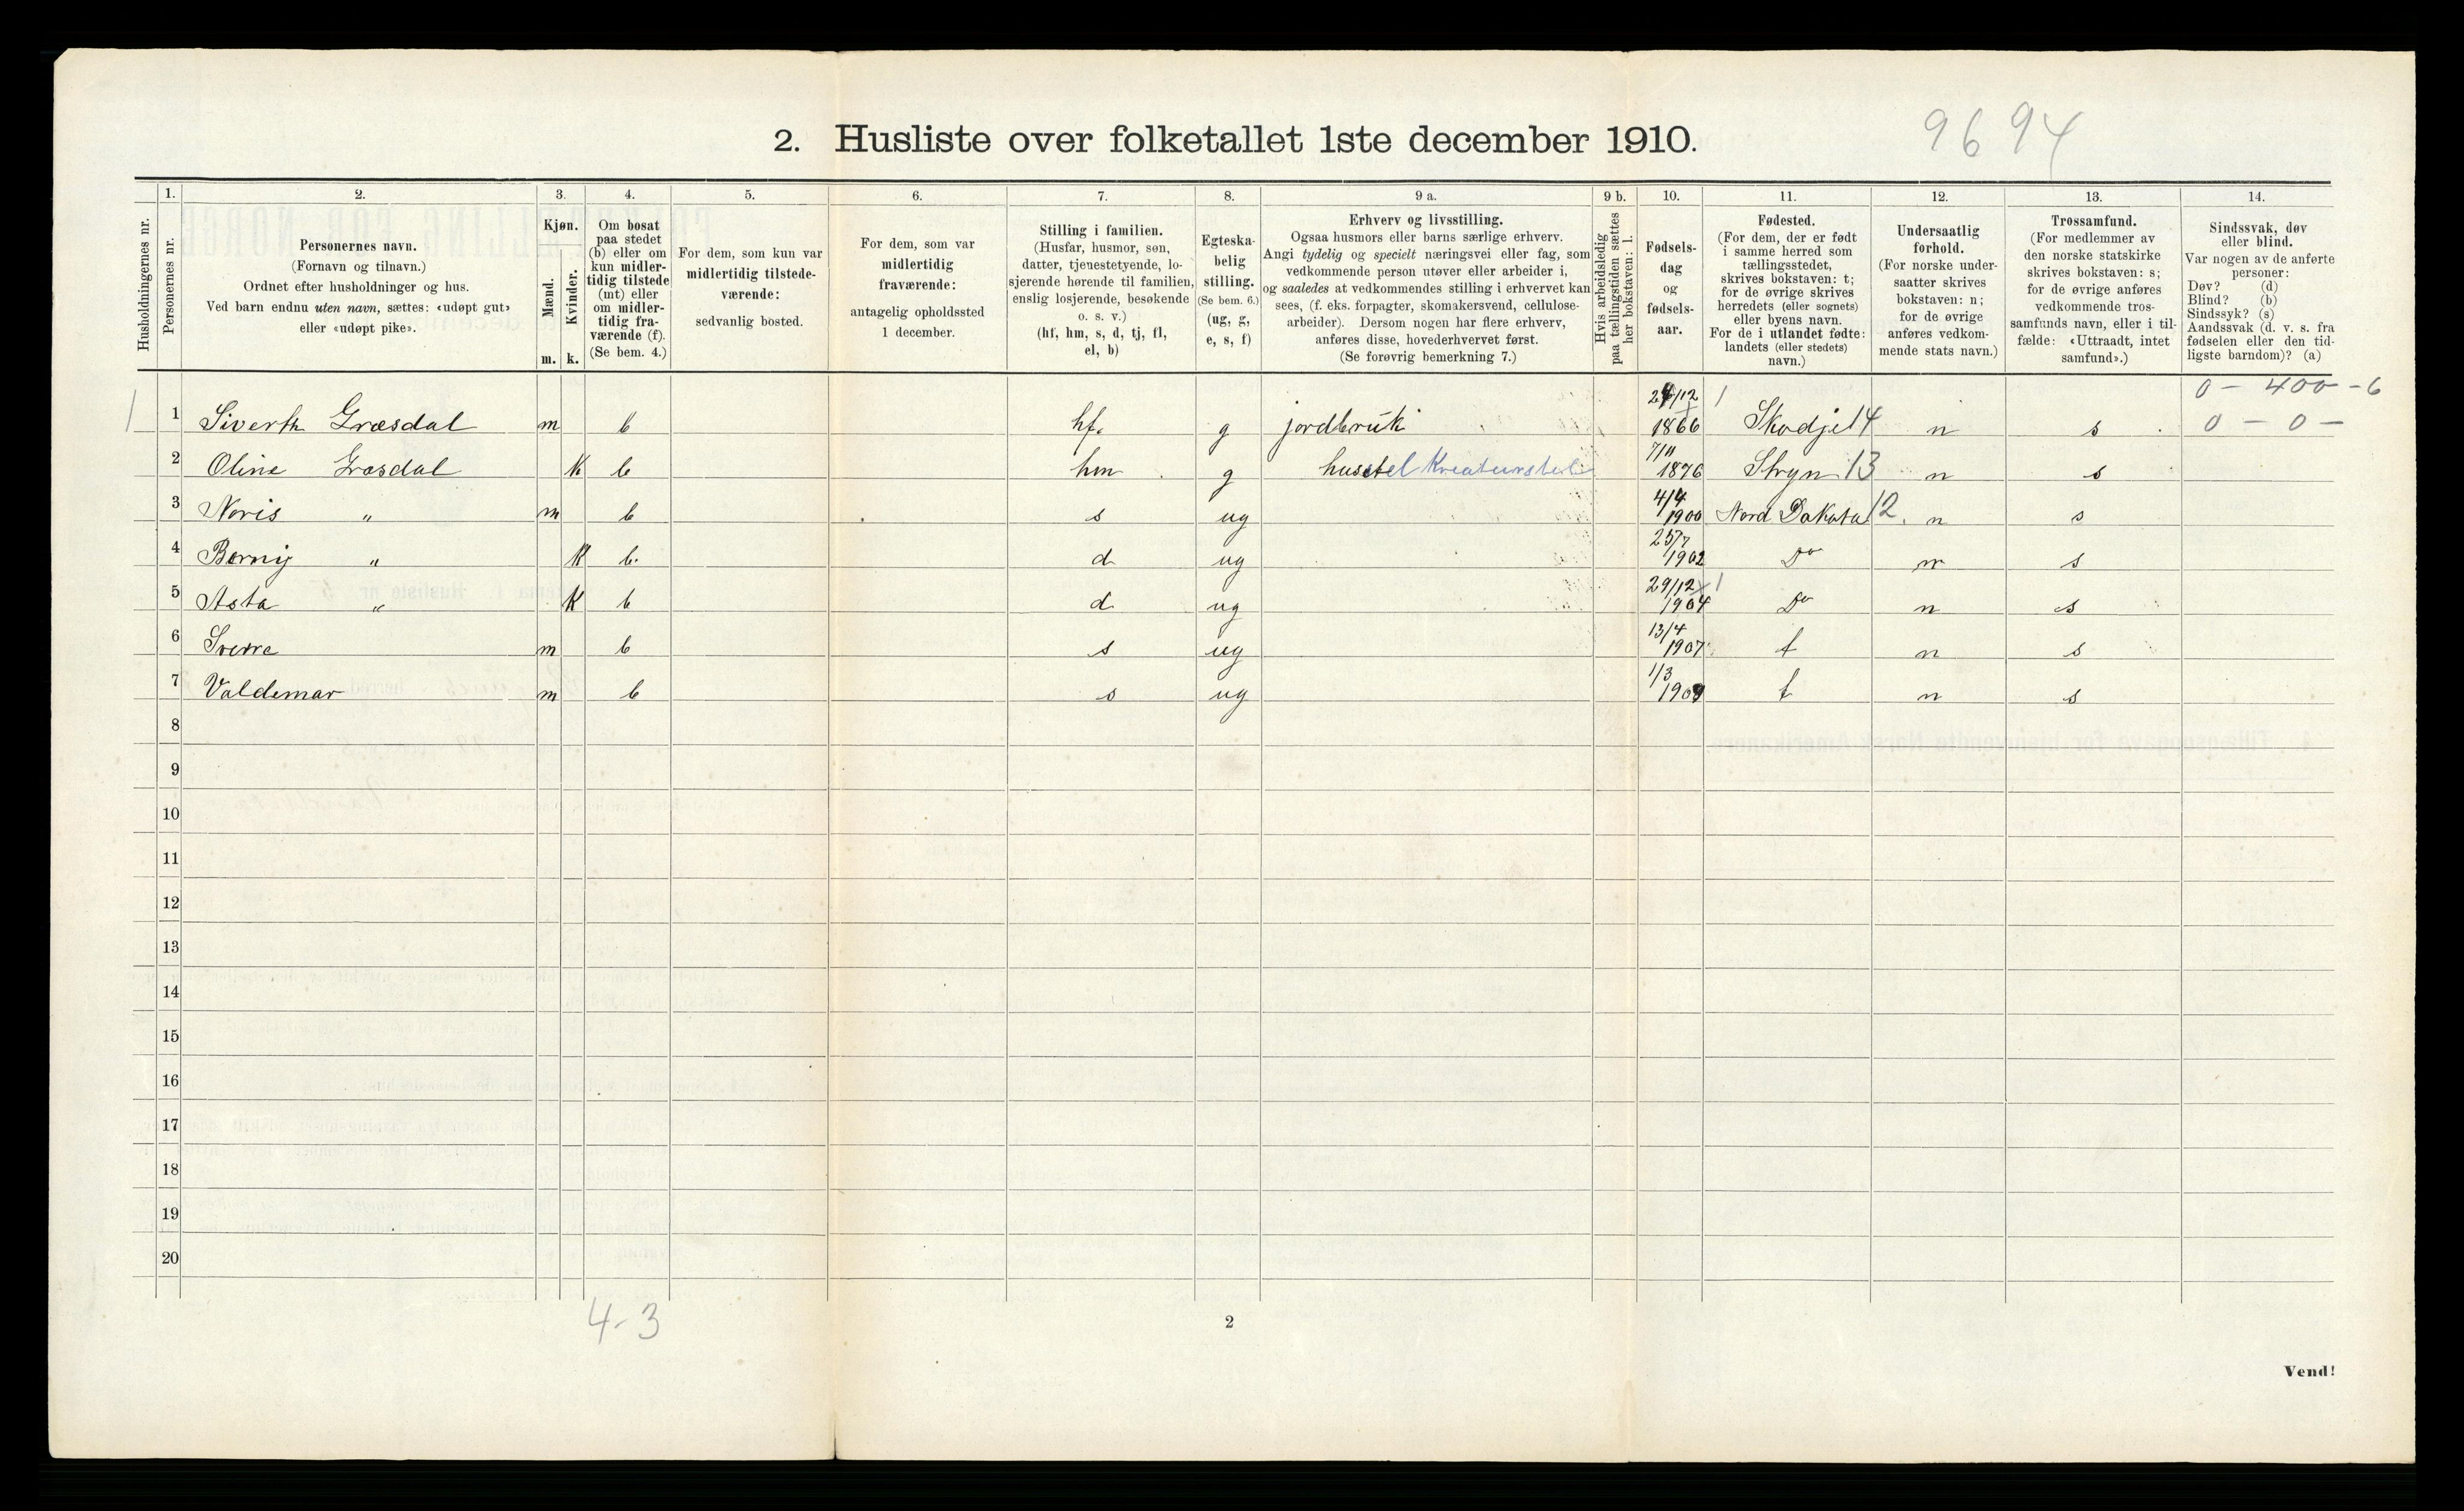 9694
2. Husliste over folketallet 1ste december 1910.
Husholdningernes nr.
1.
Personernes nr.
2.
Personernes navn.
(Fornavn og tilnavn.)
Ordnet efter husholdninger og hus.
Ved barn endnu uten navn, sættes: «udøpt gut»
eller «udøpt pike».
3.
Kjøn.
Mænd.
Kvinder.
m. k.
4.
Om bosat
paa stedet
(b) eller om
kun midler-
tidig tilstede
(mt) eller
om midler-
tidig fra-
værende (f).
(Se bem. 4.)
5.
For dem, som kun var
midlertidig tilstede-
værende:
sedvanlig bosted.
6.
For dem, som var
midlertidig
fraværende:
antagelig opholdssted
1 december.
7.
Stilling i familien.
(Husfar, husmor, søn,
datter, tjenestetyende, lo-
sjerende hørende til familien,
enslig losjerende, besøkende
o. s. v.)
(hf, hm, s, d, tj, fl,
el, b)
8.
Egteska-
belig
stilling.
(Se bem. 6.)
(ug, g,
e, s, f)
9 a.
Erhverv og livsstilling.
Ogsaa husmors eller barns særlige erhverv.
Angi tydelig og specielt næringsvei eller fag, som
vedkommende person utøver eller arbeider i,
og saaledes at vedkommendes stilling i erhvervet kan
sees, (f. eks. forpagter, skomakersvend, cellulose-
arbeider). Dersom nogen har flere erhverv,
anføres disse, hovederhvervet først.
(Se forøvrig bemerkning 7.)
9 b.
Hvis arbeidsledig
paa tællingstiden sættes
her bokstaven: l.
10.
Fødsels-
dag
og
fødsels-
aar.
11.
Fødested.
(For dem, der er født
i samme herred som
tællingsstedet,
skrives bokstaven: t;
for de øvrige skrives
herredets (eller sognets)
eller byens navn.
For de i utlandet fødte:
landets (eller stedets)
navn.)
12.
Undersaatlig
forhold.
(For norske under-
saatter skrives
bokstaven: n;
for de øvrige
anføres vedkom-
mende stats navn.)
13.
Trossamfund.
(For medlemmer av
den norske statskirke
skrives bokstaven: s;
for de øvrige anføres
vedkommende tros-
samfunds navn, eller i til-
fælde: «Uttraadt, intet
samfund».)
14.
Sindssvak, døv
eller blind.
Var nogen av de anførte
personer:
Døv? (d)
Blind? (b)
Sindssyk? (s)
Aandssvak (d. v. s. fra
fødselen eller den tid-
ligste barndom)? (a)
0 - 400 - 6
1 1 Siverth Græsdal m b hf. g jordbruk 24/12 1866 1 Skodje 14 n s 0 - 0 -
2 Oline Græsdal k b hm g husstel Kreaturstel 7/11 1876 Stryn 13 n s
3 Noris " m b s ug 4/4 1900 Nord Dakota 12. n s
4 Berniy " k b. d ug 25/7 1902 Do n s
5 Asta " k b d ug 29/12 x 1 1904 Do n s
6 Sverre m b s ug 13/4 1907 t n s
7 Valdemar m b s ug 1/3 1909 t n s
8
9
10
11
12
13
14
15
16
17
18
19
20
4-3
2
Vend!